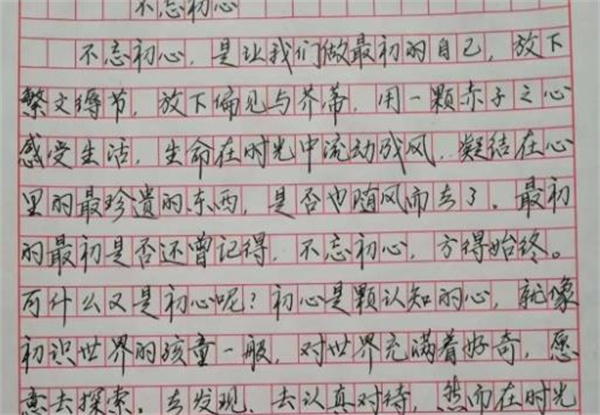 不忘初心
不忘初心，是让我们做最初的自己，放下
繁文缛节，放下偏见与芥蒂，用一颗赤子之心
感受生活，生命在时光中流动成风，凝结在心
里的最珍遗的东西，是否也随风而去了。最初
的最初是否还曾记得，不忘初心，方得始终。
而什么又是初心呢？初心是颗认知的心，就像
初识世界的孩童一般，对世界充满着好奇，愿
意去探索，去发现，去认真对待，然而在时光